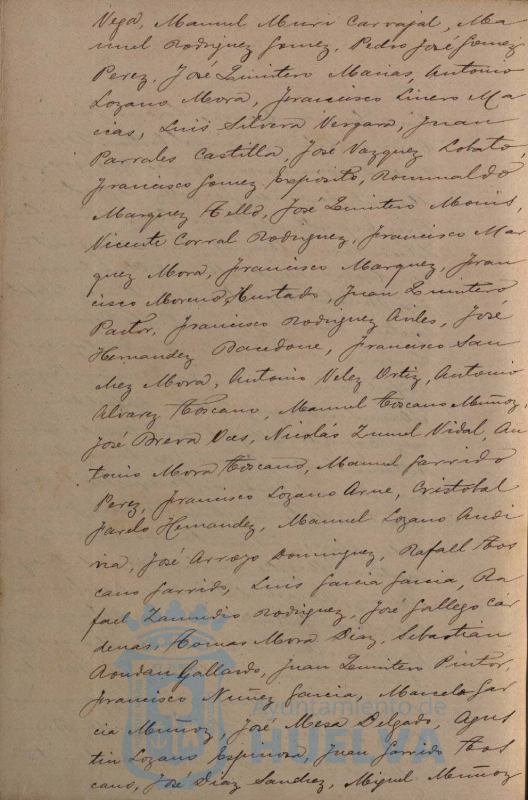 Vega, Manuel Muri Carvajal, Ma
nuel Rodriguez Gomez, Pedro José Gomez
Perez, José Quintero Macias, Antonio
Lozano Mora, Francisco Linero Ma
cias, Luis Silvera Vergara, Juan
Parrales Castilla, José Vazquez Lobato,
Francisco Gomez Expósito, Romualdo
Marquez Tello, José Quintero Monis,
Vicente Corral Rodriguez, Francisco Mar
quez Mora, Francisco Marquez, Fran
cisco Moreno Hurtado, Juan Quintero
Pastor, Francisco Rodriguez Aviles, José
Hernandez, Francisco San
chez Mora, Antonio Velez Ortiz, Antonio
Alvarez Toscano, Manuel Toscano Muñoz,
José Breva, Nicolás Zunel Vidal, An
tonio Mora Toscano, Manuel Garrido
Perez, Francisco Lozano Arne, Cristobal
Pardo Hernandez, Manuel Lozano Andi
via, José Arroyo Dominguez, Rafael Tos
cano Garrido, Luis Garcia Garcia, Ra
fael Zamudio Rodriguez, José Gallego Cár
denas, Tomas Mora Diaz, Sebastian
Roudan Gallardo, Juan Quintero Pintor,
Francisco Nuñez Garcia, Marcelo Gar
cia Muñoz, José Mesa Delgado, Agus
tin Lozano Espinosa, Juan Garrido Tos
cano, José Diaz Sanchez, Miguel Muñoz
Ayuntamiento de
HUELVA